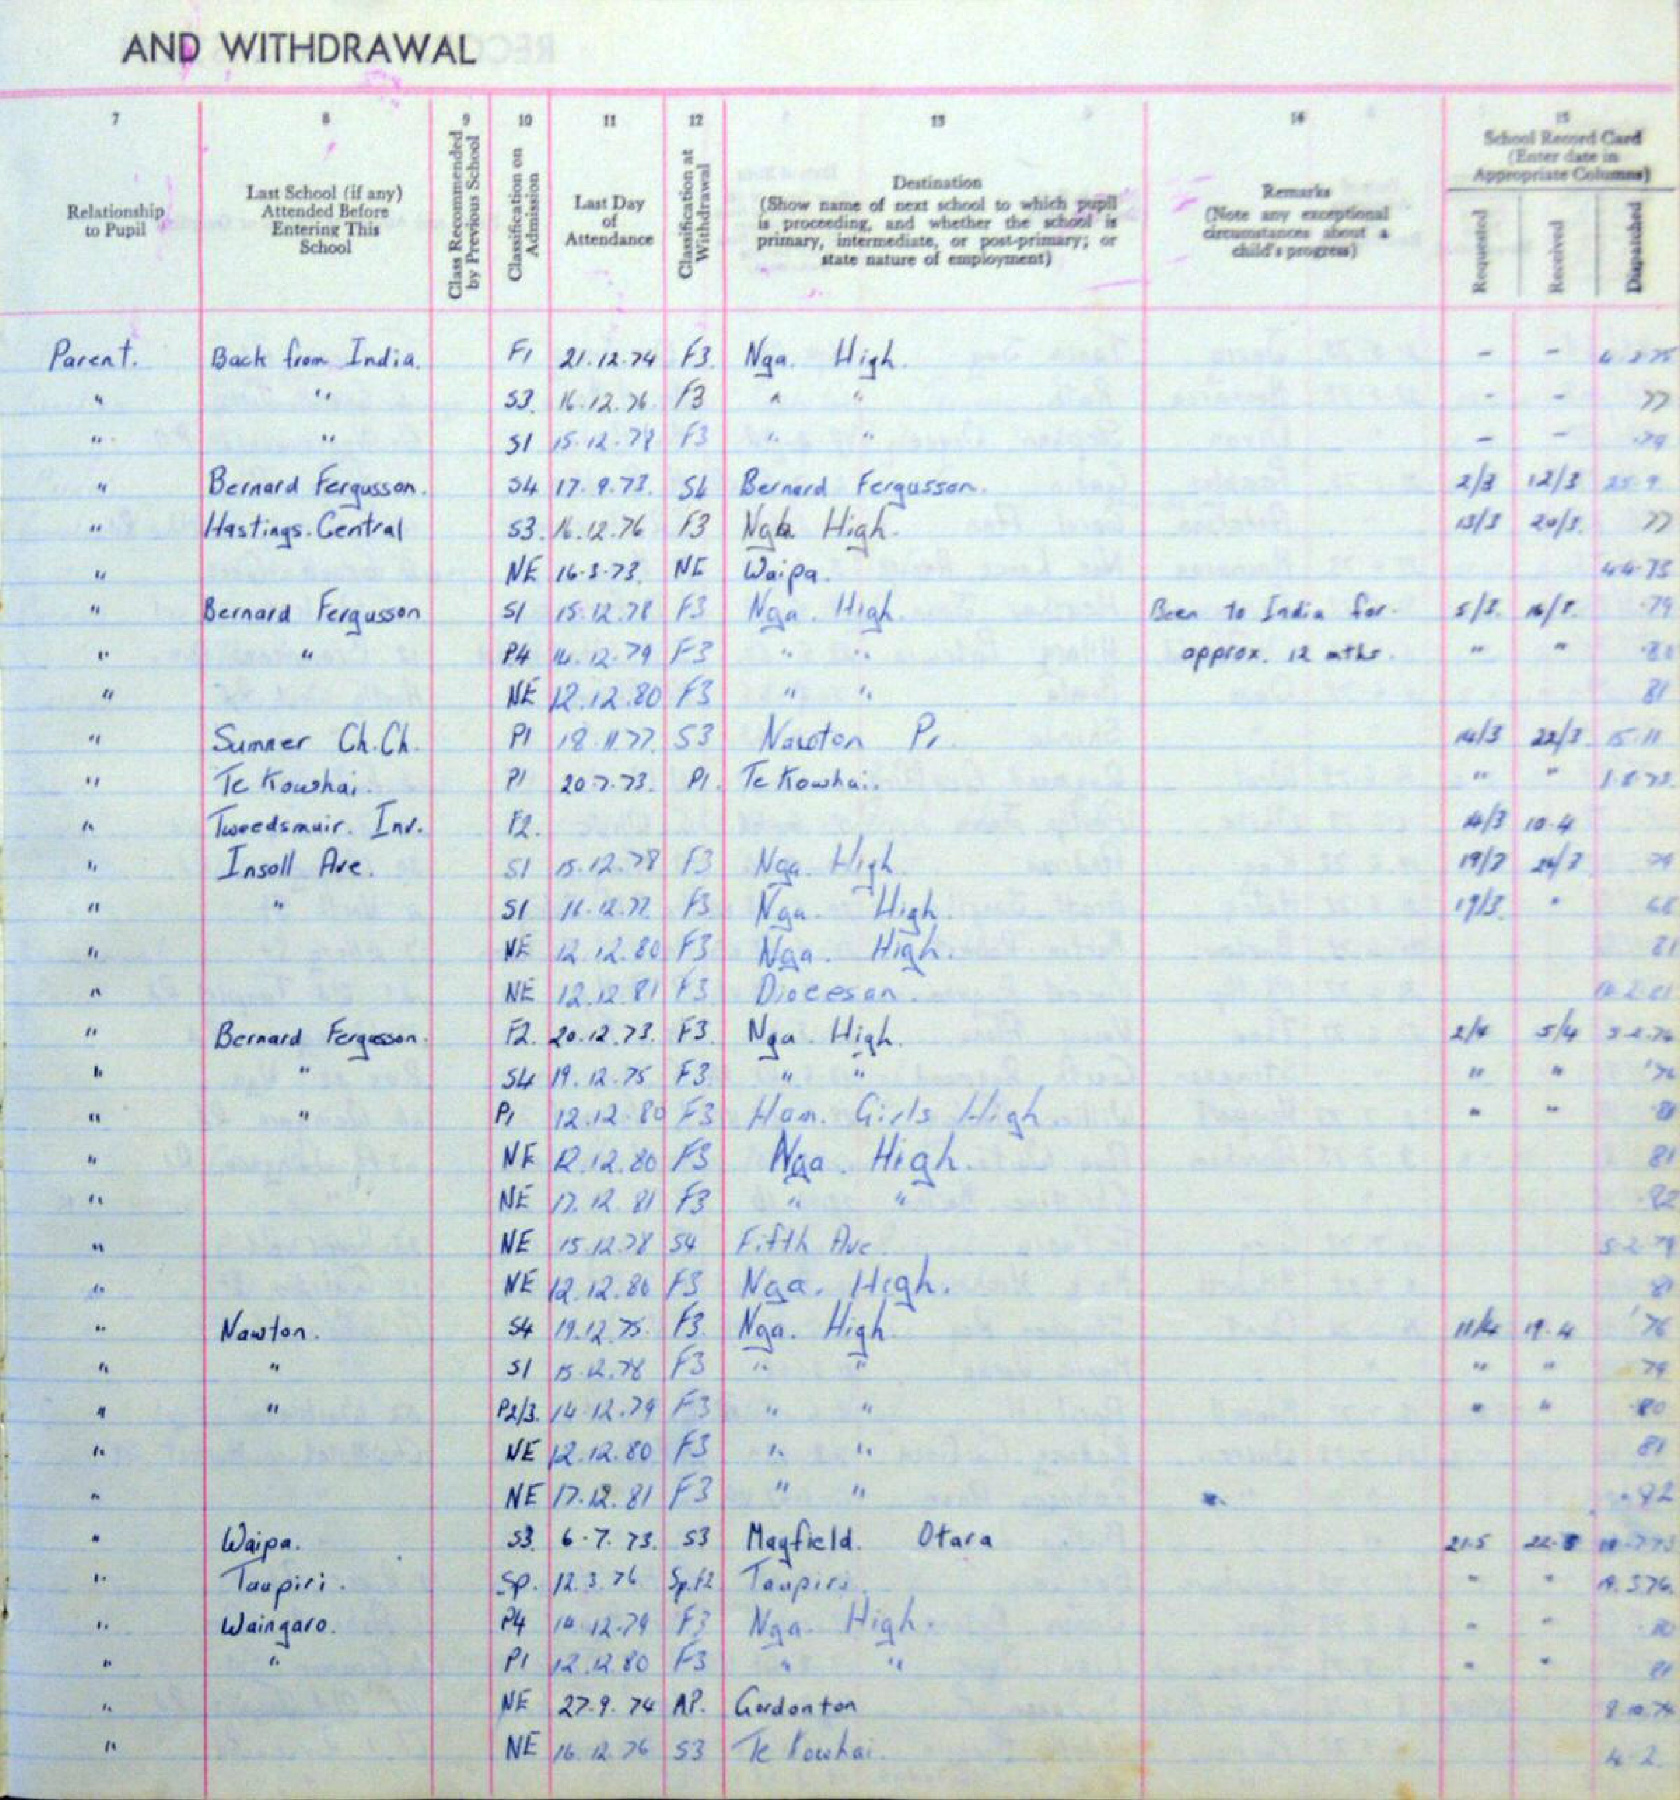 AND WITHDRAWAL
7 8 9 10 11 12 13 14 15
Relationship to Pupil
Last School (if any) Attended Before Entering This School
Class Recommended by Previous School
Classification on Admission
Last Day of Attendance
Classification at Withdrawal
Destination
(Show name of next school to which pupil is proceeding, and whether the school is primary, intermediate, or post-primary; or state nature of employment)
Remarks
(Note any exceptional circumstances about a child's progress)
School Record Card
(Enter date in Appropriate Columns)
Requested Received Dispatched
Parent. Back from India. F1 21.12.74 F3. Nga. High. - -
" " S3. 16.12.76. F3 " " - - 77
" " S1 15.12.78 F3 " " - - 79
" Bernard Fergusson. S4 17.9.73. S4 Bernard Fergusson. 2/3 12/3 25.9
" Hastings. Central S3. 16.12.76 F3 Nga High. 13/3 20/3. 77
" NE 16.3.73. NE Waipa. 4.4.73
" Bernard Fergusson S1 15.12.78 F3 Nga. High. Been to India for 5/3. 16/3. 79
" " P4 14.12.79 F3 " " approx. 12 mths. " " 80
" NE 12.12.80 F3 " " 81
" Sumner Ch.Ch. P1 18.11.77. S3 Nawton Pr. 14/3 22/3 15.11
" Te Kowhai. P1 20.7.73. P1. Te Kowhai. " " 1.8.73
" Tweedsmuir. Inv. F2. 14/3 10.4
" Insoll Ave. S1 15.12.78 F3 Nga. High 19/3 26/3 79
" " S1 16.12.77. F3 Nga. High. 19/3. "
" NE 12.12.80 F3 Nga. High. 81
" NE 12.12.81 F3 Diocesan.
" Bernard Fergusson. F2. 20.12.73. F3. Nga. High. 2/4 5/4 5.2.74
" " S4 19.12.75 F3. " " " " '76
" " P1 12.12.80 F3 Ham. Girls High. " " 81
" NE 12.12.80 F3 Nga. High. 81
" NE 17.12.81 F3 " " 82
" NE 15.12.78 S4 Fifth Ave. 5.2.79
" NE 12.12.80 F3 Nga. High. 81
" Nawton. S4 19.12.75. F3. Nga. High. 11/4 19.4 '76
" " S1 15.12.78 F3 " " " " 79
" " P2/3. 14.12.79 F3 " " " " 80
" NE 12.12.80 F3 " " 81
" NE 17.12.81 F3 " " 82
" Waipa. S3. 6.7.73. S3 Mayfield. Otara 21.5 22.5
" Taupiri. Sp. 12.3.76 Sp.F2 Taupiri. " " 19.3.76.
" Waingaro. P4 14.12.79 F3 Nga. High. " " 80
" " P1 12.12.80 F3 " " " " 81
" NE 27.9.74 AP. Gordonton 8.10.74
" NE 16.12.76 S3 Te Kowhai. 4.2.